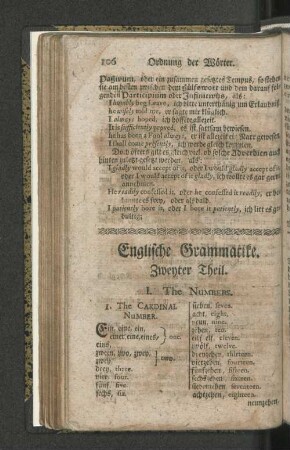 106 Ordnung der Wörter.
Passivum, oder ein zusammen gesetztes Tempus, so stehen
sie am besten zwischen dem Hülfswort und dem darauf fol-
genden Participium oder Infinitivus, als:
I humbly beg Leave, ich bitte unterthänig um Erlaubniß
he wisely told me, er sagte mir klüglich.
I always hoped, ich hoffete allezeit.
It is sufficiently proved, es ist sattsam bewiesen.
he has been a Fool always, er ist allezeit ein Narr gewesen
I shall come presently, ich werde gleich kommen
hinten zuletzt gesetzt werden. als:
I gladly would accept of it, oder I would gladly accept of it
oder I would accept of it gladly, ich wollte es gar gerne
annehmen.
He readily confessed it, oder he confessed it readily, er be-
kannte es
I patiently bore it, oder I bore it patiently, ich litt es ge-
dultig.
Englische Grammatike.
Zweyter Theil.
I. The Numbers.
1. The Cardinal
Number.
Ein, eine, ein,
einer eine, eines, one.
eins,
zween, zwo, zwey, two.
zwey
drey, three.
vier, four.
fünf, five.
sechs, six.
sieben, seven.
acht, eight.
neun, nine.
zehen, ten.
eilf, eleven.
zwölf, twelve.
dreyzehen, thirteen.
vierzehen, fourteen.
fünfzehen, fifteen.
sechszehen, sixteen.
siebenzehen, seventeen.
achtzehen, eighteen.
neunzehen,